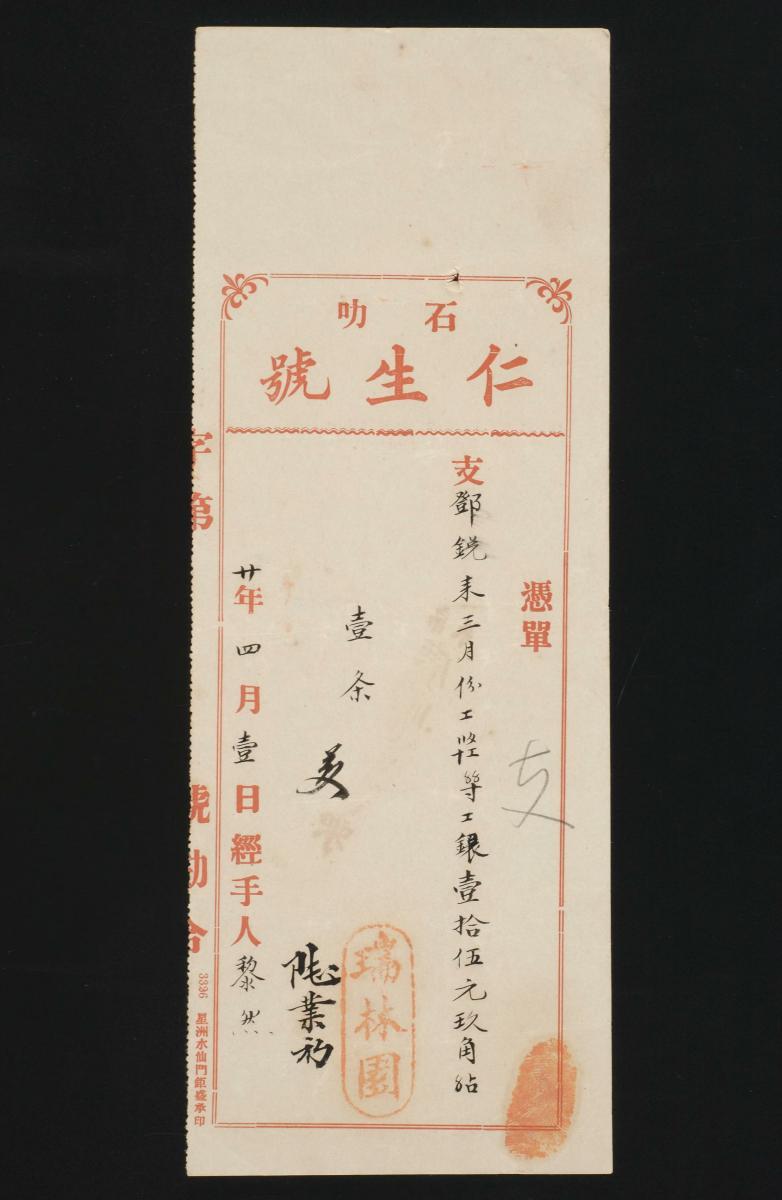 石叻
仁生號
憑單
支
支鄧鋭来三月份工 等工銀壹拾伍元玖角
壹条
瑞林園
業
廿年四月壹日經手人黎然
字第 號勘合
3396 星洲水仙門鉅盛承印